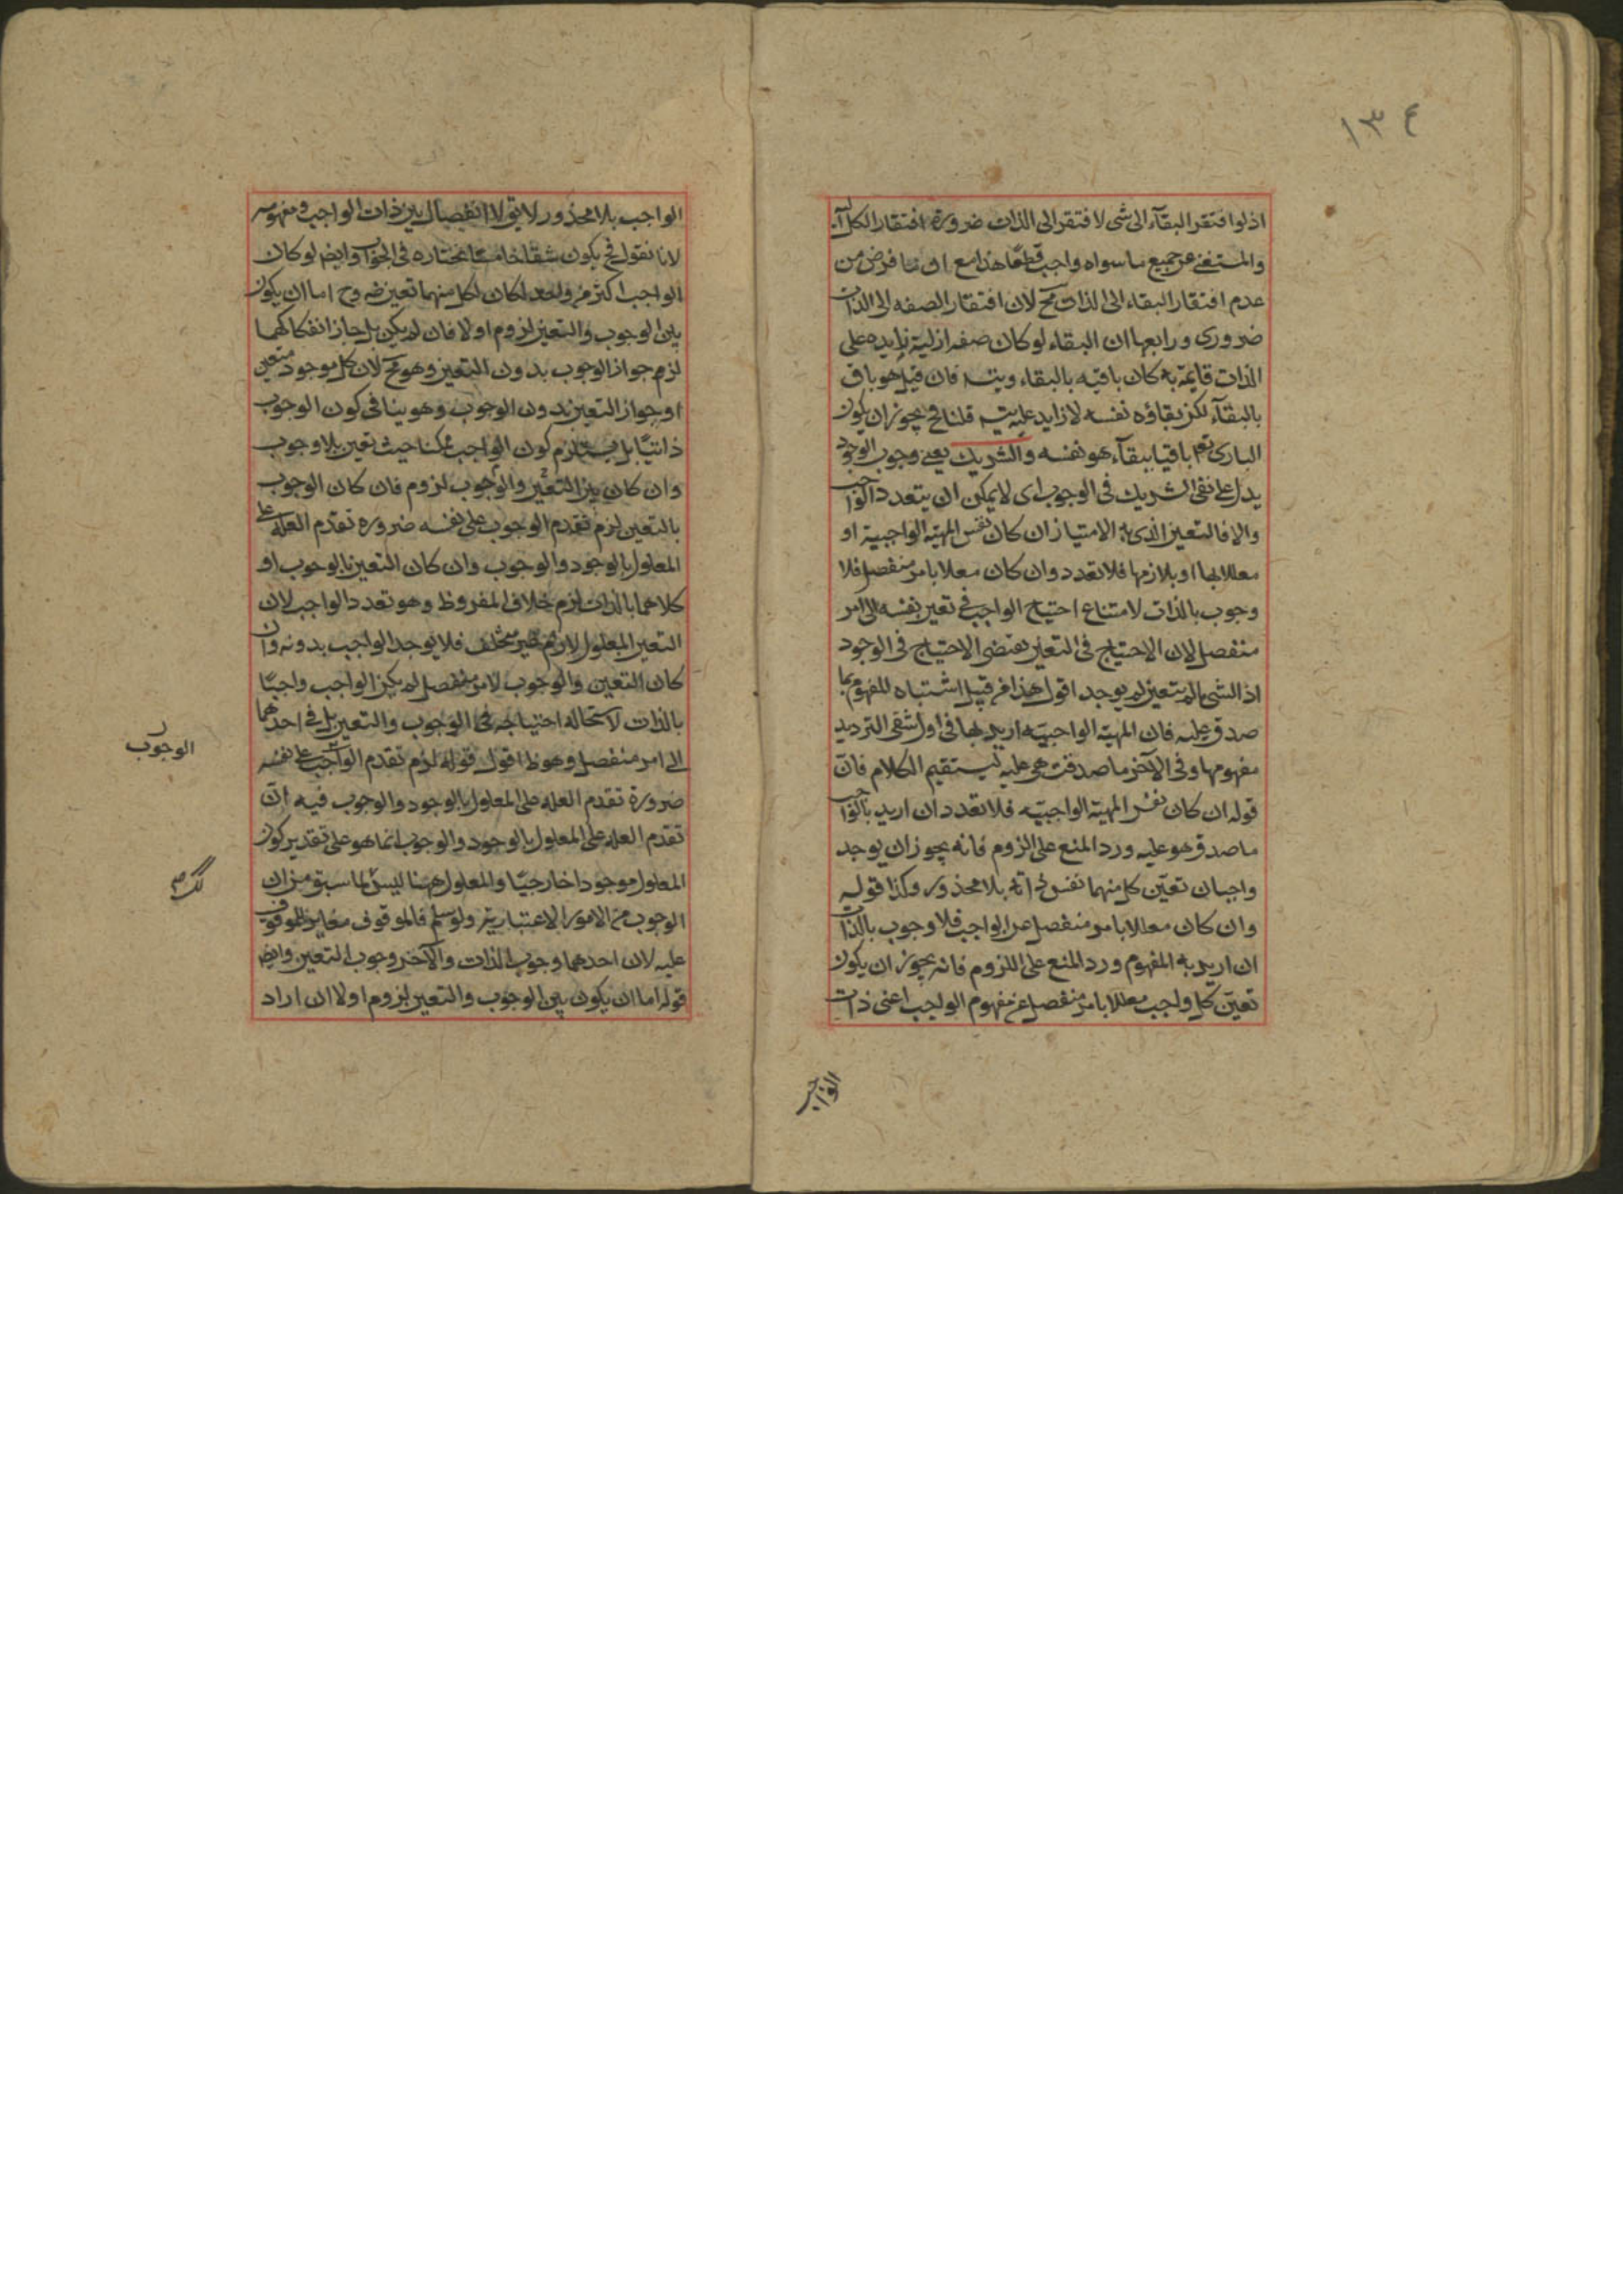 ١٣٤
اذ لو افتقر البقاء الى شى لافتقر الى الذات ضرورة افتقار الكل اليه
والمستغنى عن جميع ما سواه واجب قطعا هذا مع ان ما فرض من
عدم افتقار البقاء الى الذات مح لان افتقار الصفه الى الذات
ضرورى ورابعها ان البقاء لو كان صفه ازلية زايده على
الذات قايمة به كان باقيه بالبقاء ويتسه فان قيل هو باق
بالبقاء لكن بقاؤه نفسه لا زايد عليه يتسه قلنا فح يجوز ان يكون
البارى تعم باقيا ببقاء هو نفسه والشريك يعنى وجوب الوجود
يدل على نفى الشريك فى الوجوب اى لا يمكن ان يتعدد الواجب
والا فالتعين الذى به الامتياز ان كان نفس المهية الواجبية او
معللا بها او بلازمها فلا تعدد وان كان معللا بامر منفصل فلا
وجوب بالذات لامتناع احتياج الواجب فى تعين نفسه الى امر
منفصل لان الاحتياج فى التعين يقتضى الاحتياج فى الوجود
اذ الشى ما لم يتعين لم يوجد اقول هذا من قبيل اشتباه المفهوم بما
صدق عليه فان المهية الواجبيه اريد بها فى اول شقى الترديد
مفهومها وفى الآخر ما صدقت هى عليه ليستقيم الكلام فان
قوله ان كان نفس المهية الواجبيه فلا تعدد ان اريد بالواجب
ما صدق هو عليه ورد المنع على الزوم فانه يجوز ان يوجد
واجبان تعين كل منهما نفس ذاته بلا محذور وكذا قوله
وان كان معللا بامر منفصل عن الواجب فلا وجوب بالذات
ان اريد به المفهوم ورد المنع على اللزوم فانه يجوز ان يكون
تعين كل واجب معللا بامر منفصل عن مفهوم الواجب اعنى ذات
الواجب
الواجب بلا محذور لا يق لا انفصال بين ذات الواجب ومفهومه
لانا نقول فح يكون شقا خامسا نختاره فى الجواب وايضه لو كان
الواجب اكثر من واحد لكان لكل منهما تعين ضه وح اما ان يكون
بين الوجوب والتعين لزوم او لا فان لم يكن بل جاز انفكاكهما
لزم جواز الوجوب بدون التعين وهو مح لان كل موجود متعين
او جواز التعين بدون الوجوب وهو ينافى كون الوجوب
ذاتيا بل يستلزم كون الواجب ممكنا حيث تعين بلا وجوب
وان كان بين التعين والوجوب لزوم فان كان الوجوب
بالتعين لزم تقدم الوجوب على نفسه ضروره تقدم العله على
المعلول بالوجود والوجوب وان كان التعين بالوجوب او
كلاهما بالذات لزم خلاف المفروظ وهو تعدد الواجب لان
التعين المعلول لازم غير متخلف فلا يوجد الواجب بدونه وان
كان التعين والوجوب لامر منفصل لم يكن الواجب واجبا
بالذات لاستحالة احتياجه فى الوجوب والتعين بل فى احدهما
الى امر منفصل وهو ظ اقول قوله لزم تقدم الواجب على نفسه
ضرورة تقدم العله على المعلول بالوجود والوجوب فيه ان
تقدم العله على المعلول بالوجود والوجوب انما هو على تقدير كون
المعلول موجودا خارجيا والمعلول ههنا ليس لما سبق من ان
الوجوب من الامور الاعتبارية ولو سلم فالموقوف مغاير للموقوف
عليه لان احدهما وجوب الذات والآخر وجوب التعين وايضه
قوله اما ان يكون بين الوجوب والتعين لزوم او لا ان اراد
الوجوب